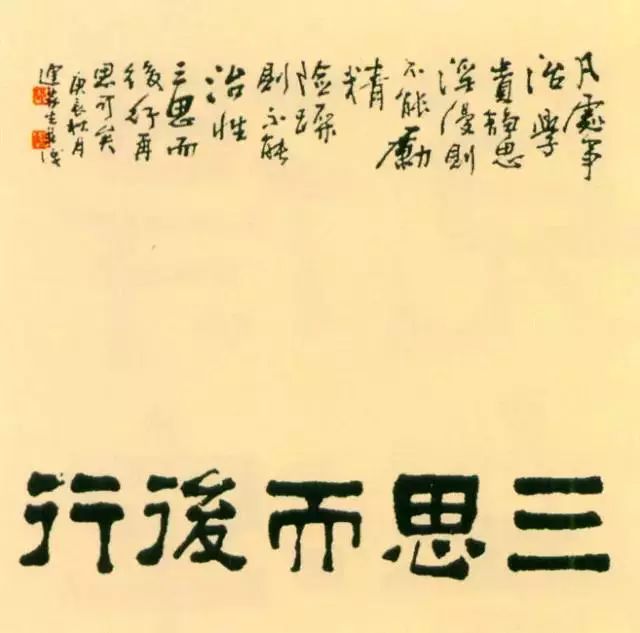 凡處事
治學
貴靜思
淫漫則
不能勵
精
險躁
則不能
治性
三思而
後行再
思可矣
庚辰秋月
三思而後行